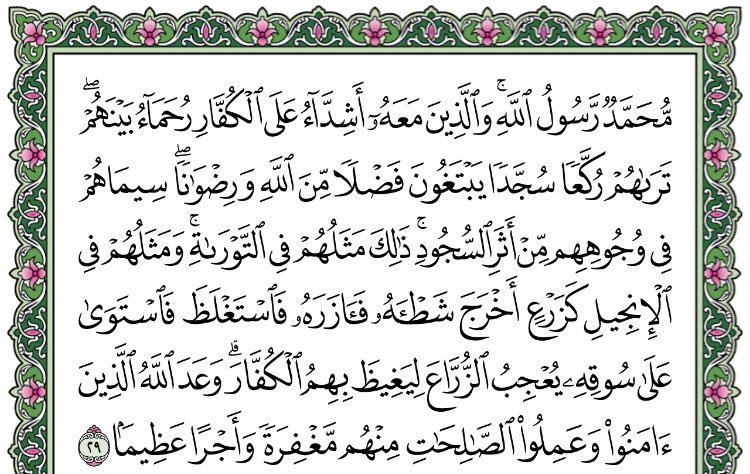 مُّحَمَّدٌ رَّسُولُ ٱللَّهِۚ وَٱلَّذِينَ مَعَهُۥٓ أَشِدَّآءُ عَلَى ٱلۡكُفَّارِ رُحَمَآءُ بَيۡنَهُمۡۖ
تَرَىٰهُمۡ رُكَّعٗا سُجَّدٗا يَبۡتَغُونَ فَضۡلٗا مِّنَ ٱللَّهِ وَرِضۡوَٰنٗاۖ سِيمَاهُمۡ
فِي وُجُوهِهِم مِّنۡ أَثَرِ ٱلسُّجُودِۚ ذَٰلِكَ مَثَلُهُمۡ فِي ٱلتَّوۡرَىٰةِۚ وَمَثَلُهُمۡ فِي
ٱلۡإِنجِيلِ كَزَرۡعٍ أَخۡرَجَ شَطۡـَٔهُۥ فَـَٔازَرَهُۥ فَٱسۡتَغۡلَظَ فَٱسۡتَوَىٰ
عَلَىٰ سُوقِهِۦ يُعۡجِبُ ٱلزُّرَّاعَ لِيَغِيظَ بِهِمُ ٱلۡكُفَّارَۗ وَعَدَ ٱللَّهُ ٱلَّذِينَ
ءَامَنُواْ وَعَمِلُواْ ٱلصَّٰلِحَٰتِ مِنۡهُم مَّغۡفِرَةٗ وَأَجۡرًا عَظِيمَۢا ٢٩